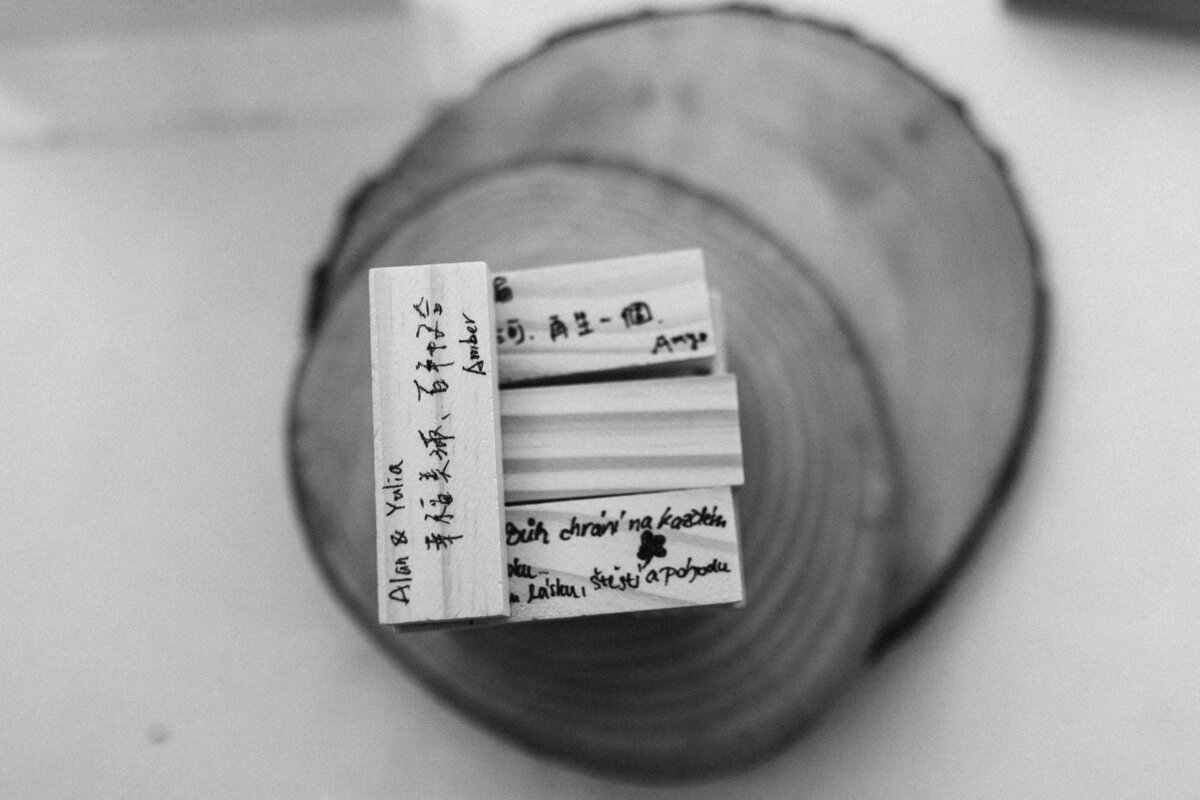 Alan & Yulia
幸福美滿、百年好合
Amber
再生一個.
Bůh chrání na každém
lásku, štěstí a pohodu